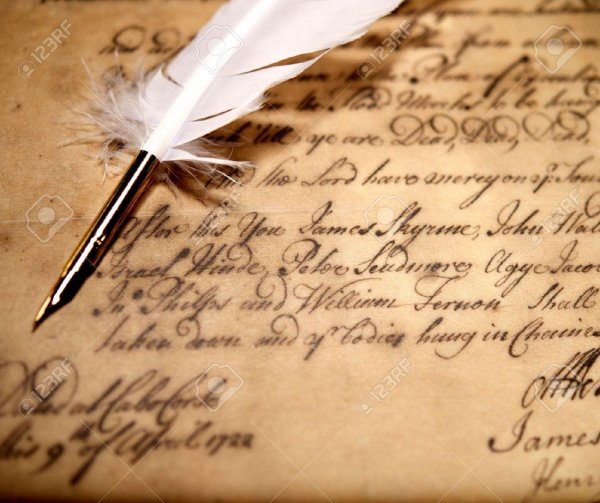 from
and
the Mad Marks to be hang
till ye are Dead, Dead, Dead
And the Lord have mercy on yr Soul
After this You James Skyrme, John Wal
Israel Hinde, Peter Scudmore, Agge Jacob
Jno. Philps and William Fernon Shall
taken down and yr bodies hung in Chaines
Dated at Cabo Corso
this 9th of April 1722
James
Henr
123RF